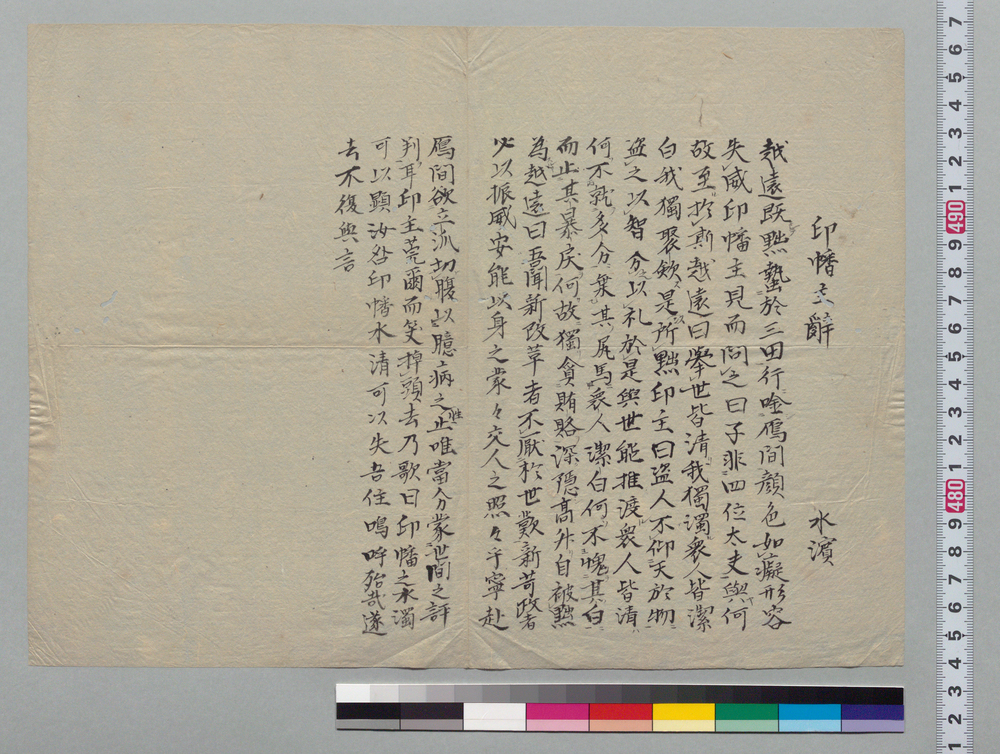 印幡之辭 水濱
越遠既黜蟄於三田行唫鴈間顔色如癡形容
失威印幡主見而問之曰子非四位太夫與何
故至於斯越遠曰舉世皆清我獨濁衆人皆潔
白我獨聚欲是所黜印主曰盗人不仰天於物
盗之以智分以礼於是與世能推渡衆人皆清
何不就多分棄其尻馬衆人潔白何不愧其白
而止其暴戻何故獨貪賄賂深隠高外自被黜
為越遠曰吾聞新改革者不厭於世歎新苛政者
必以振威安能以身之蒙々交人之照々乎寧赴
鴈間欲立派切腹以臆病之性止唯當分蒙世間之評
判耳印主莞爾而笑掉頭去乃歌曰印幡之水濁
可以顕汝咎印幡水清可以失吾住鳴呼殆哉遂
去不復與言